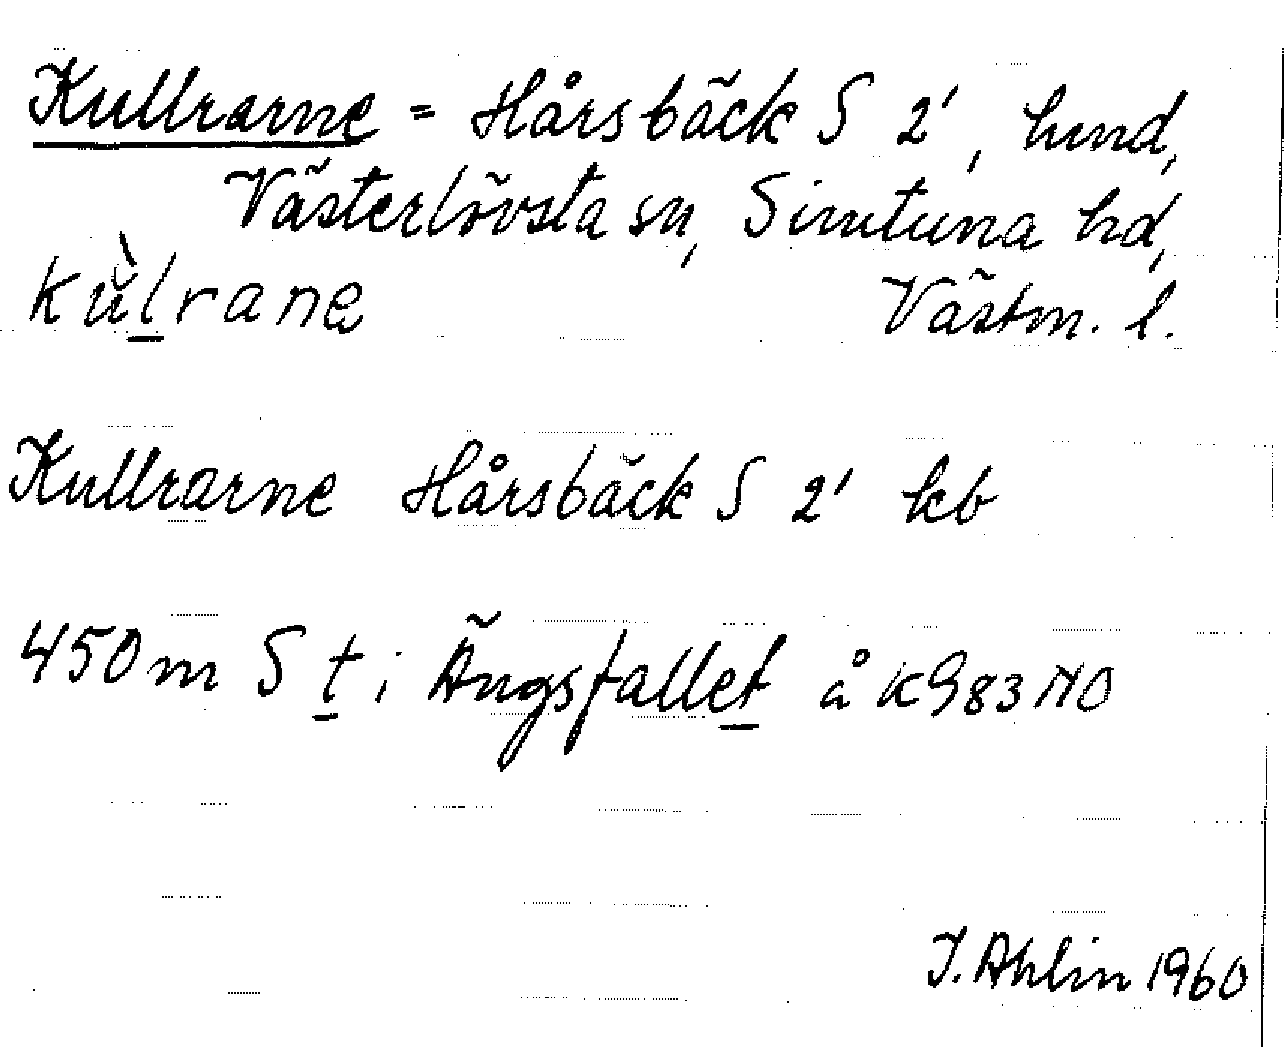 Kullrarne = Hårsbäck S 2', hmd,
Västerlövsta sn, Simtuna hd,
kùlrane Västm. l.
Kullrarne Hårsbäck S 2' kb
450 m S t i Ängsfallet å K983 NO
J. Ahlin 1960